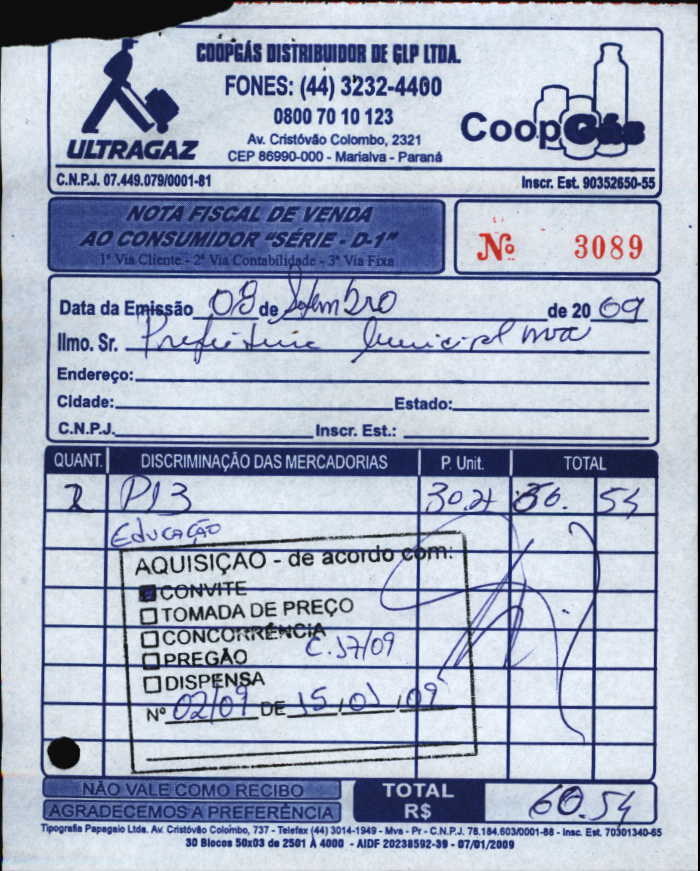 COOPGÁS DISTRIBUIDOR DE GLP LTDA.
FONES: (44) 3232-4400
0800 70 10 123
Av. Cristóvão Colombo, 2321
CEP 86990-000 - Marialva - Paraná
ULTRAGAZ
CoopGás
C.N.P.J. 07.449.079/0001-81
Inscr. Est. 90352650-55
NOTA FISCAL DE VENDA
AO CONSUMIDOR "SÉRIE - D-1"
1ª Via Cliente - 2ª Via Contabilidade - 3ª Via Fixa
Nº 3089
Data da Emissão 08 de Setembro de 2009
Ilmo. Sr. Prefeitura Municipal mva
Endereço:
Cidade: Estado:
C.N.P.J. Inscr. Est.:
QUANT. DISCRIMINAÇÃO DAS MERCADORIAS P. Unit. TOTAL
2 P13 30.27 60. 54
Educação
AQUISIÇÃO - de acordo com:
CONVITE
TOMADA DE PREÇO
CONCORRÊNCIA
C. 17/09
PREGÃO
DISPENSA
Nº 02/09 DE 15/01/09
NÃO VALE COMO RECIBO
AGRADECEMOS A PREFERÊNCIA
TOTAL
R$ 60.54
Tipografia Papagaio Ltda. Av. Cristóvão Colombo, 737 - Telefax (44) 3014-1949 - Mva - Pr - C.N.P.J. 78.184.603/0001-88 - Insc. Est. 70301340-65
30 Blocos 50x03 de 2501 À 4000 - AIDF 20238592-39 - 07/01/2009